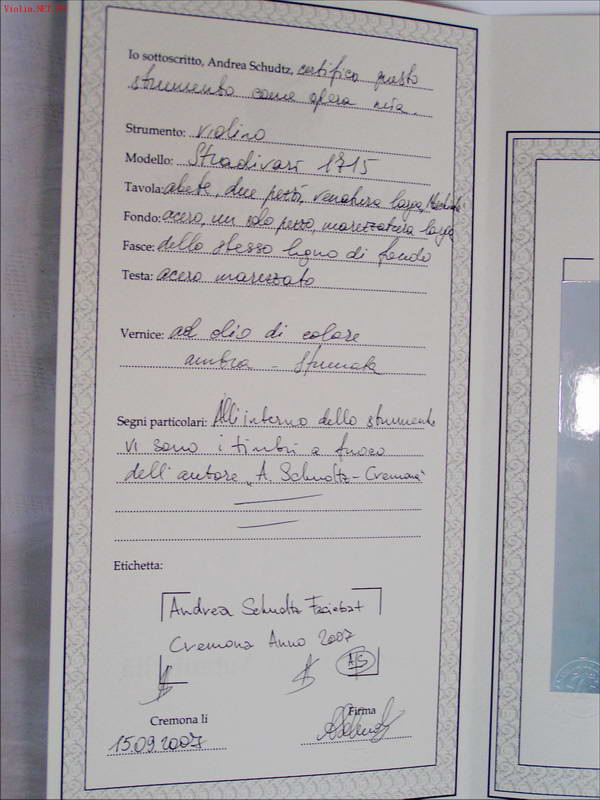 Violin.NET.cn
Io sottoscritto, Andrea Schudtz, certifico questo
strumento come opera mia.
Strumento: violino
Modello: Stradivari 1715
Tavola: abete, due pezzi, venatura larga,
Fondo: acero, un solo pezzo, marezzatura larga
Fasce: dello stesso legno di fondo
Testa: acero marezzato
Vernice: ad olio di colore
ambra - sfumata
Segni particolari: All'interno dello strumento
vi sono i timbri a fuoco
dell'autore „A. Schudtz-Cremona"
Etichetta:
Andrea Schudtz Faciebat
Cremona Anno 2007
AS
Cremona li
Firma
15.09.2007